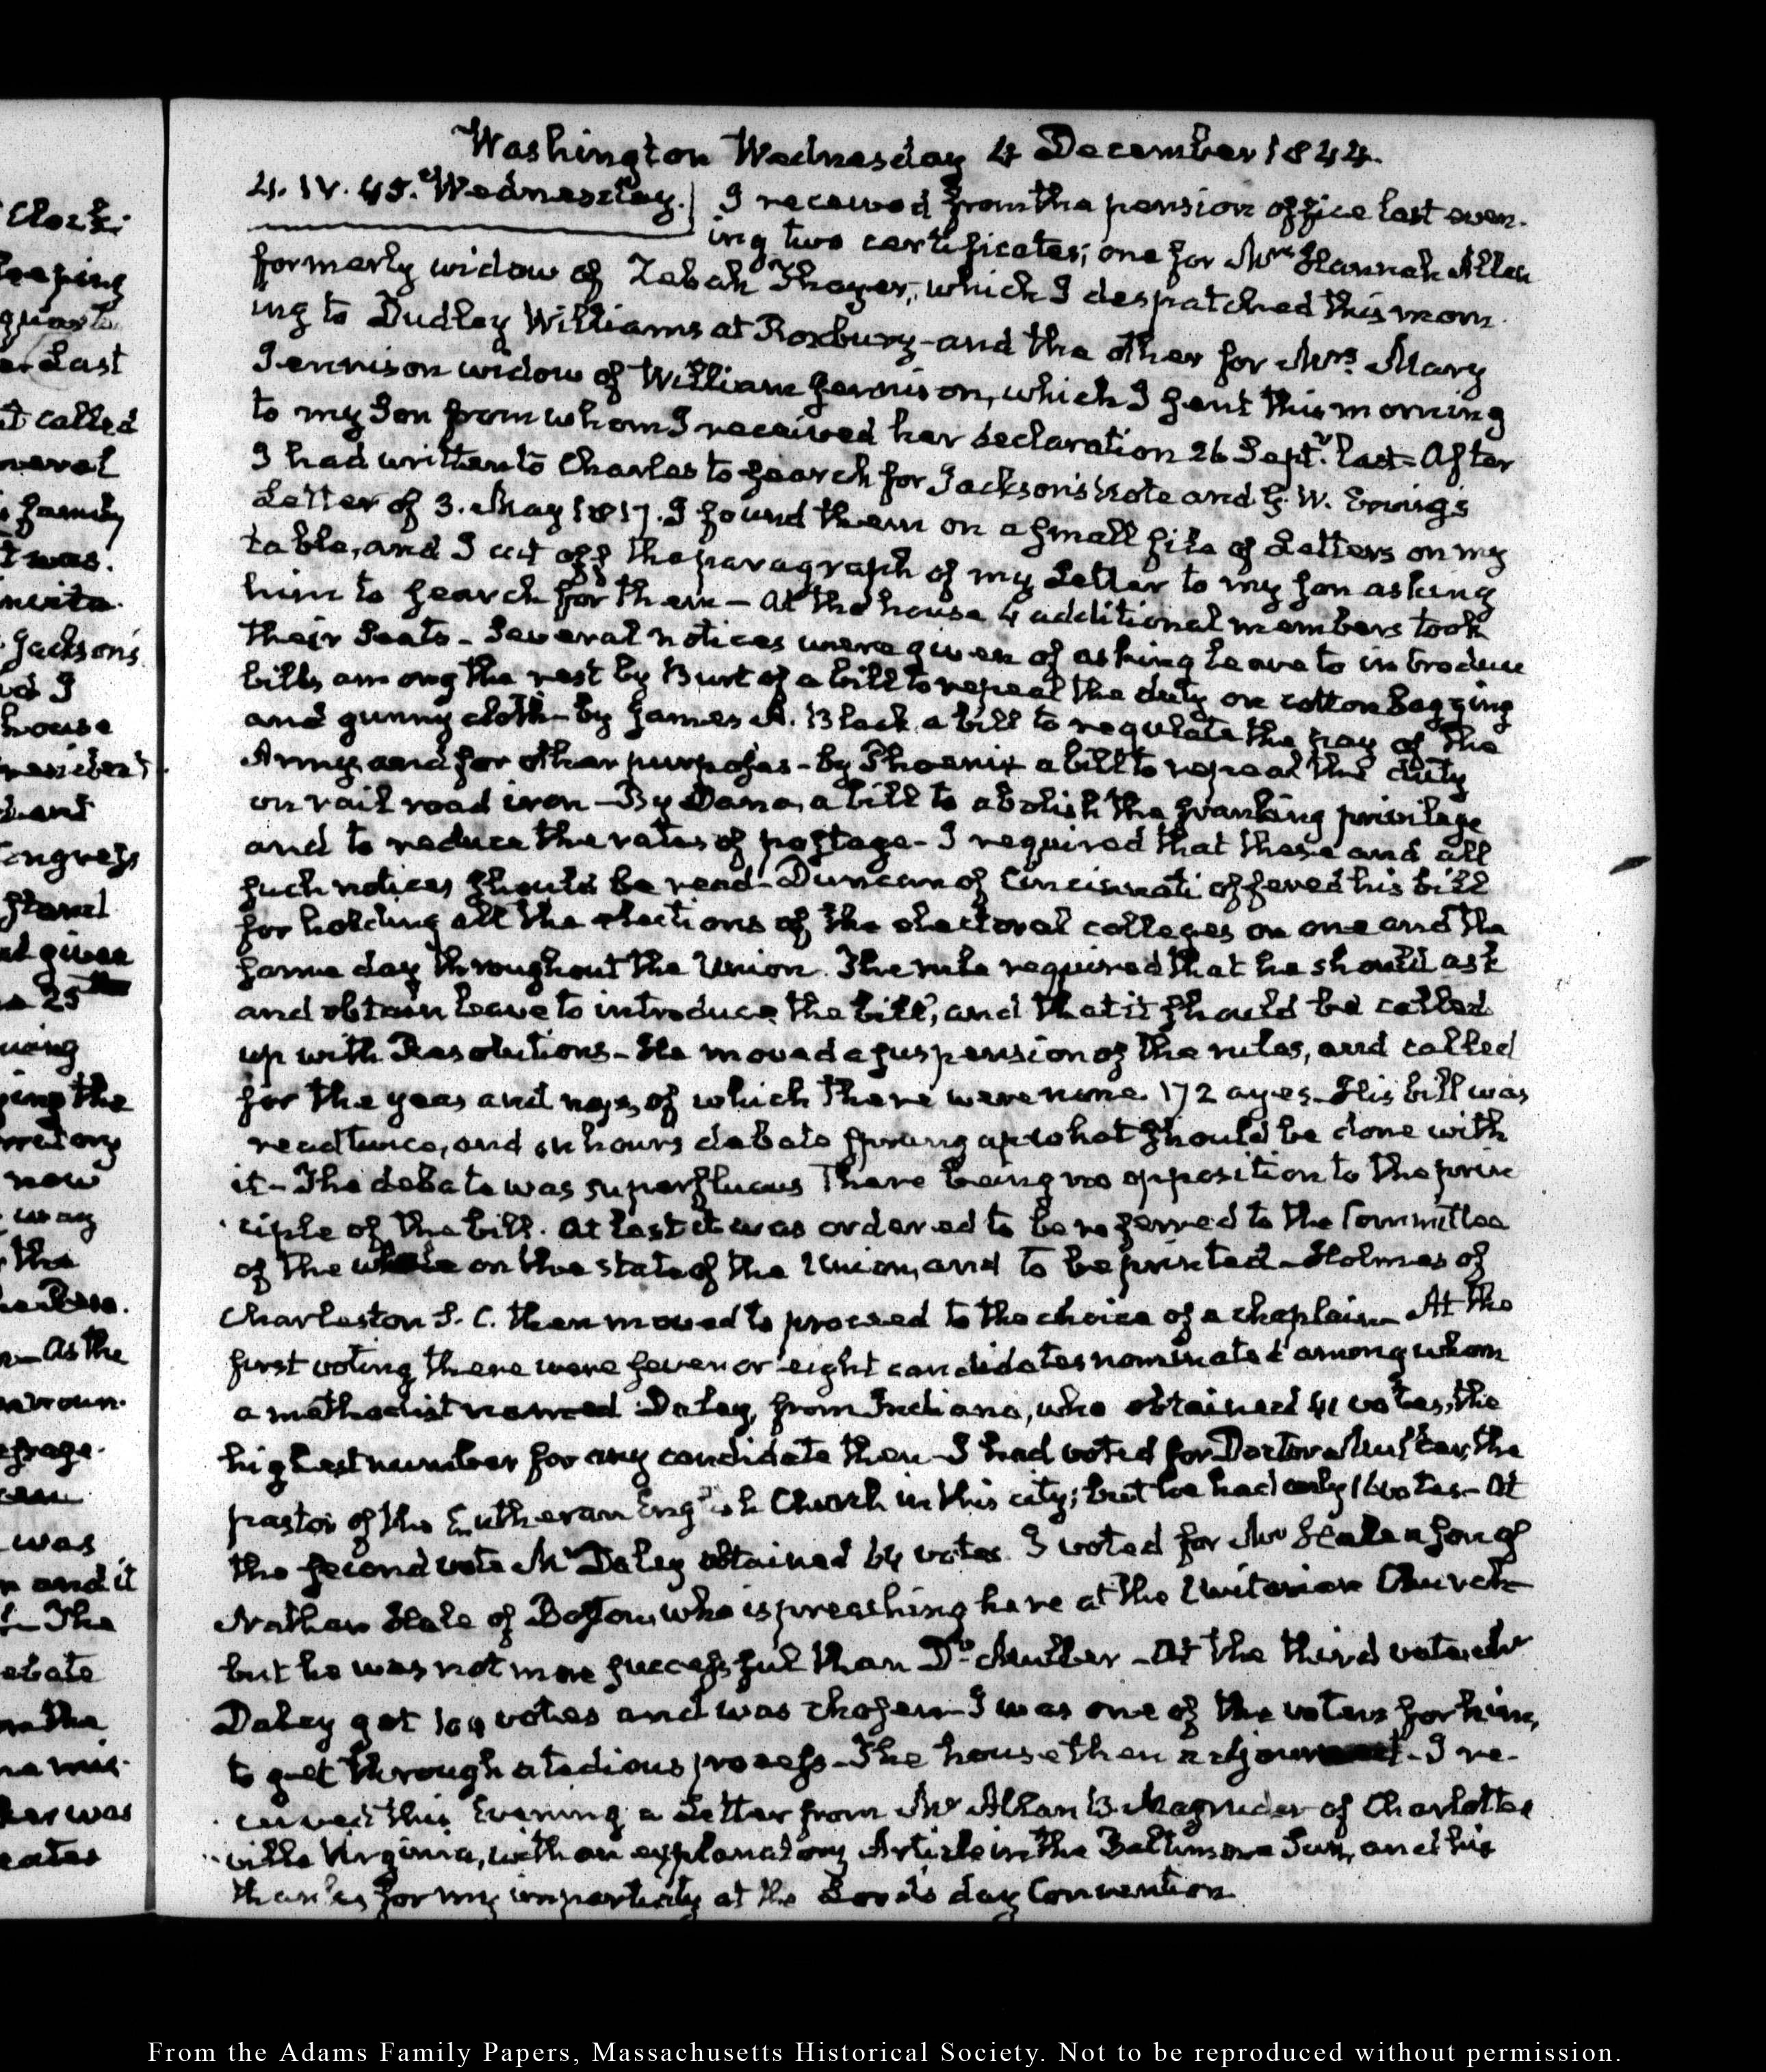 Clock;
keeping
er Last
t called
neral
family
t was.
Jackson's
house
and
Congress
given
25th
ging the
now
way
the
As the
was
and it
The
debate
on the
was
Washington Wednesday 4 December 1844.
4. IV. 45. Wednesday. I received from the pension office last even-
ing two certificates; one for Mrs. Hannah Allen
formerly widow of Zebah Thayer, which I despatched this morn-
ing to Dudley Williams at Roxbury – and the other for Mrs. Mary
Jennison widow of William Jennison, which I sent this morning
to my Son from whom I received her declaration 26 Septr. last – After
I had written to Charles to search for Jackson's Note and G. W. Ervings
Letter of 3. May 1817. I found them on a small file of Letters on my
table, and I cut off the paragraph of my Letter to my son asking
him to search for them – At the house 4 additional members took
their Seats – Several notices were given of asking leave to introduce
bills, among the rest by Burt of a bill to repeal the duty on cotton bagging
and gunny cloth – by James A. Black a bill to regulate the pay of the
Army, and for other purposes – by Phoenix a bill to repeal the duty
on rail road iron – By Dana, a bill to abolish the franking privilege
and to reduce the rates of postage – I required that these and all
such notices should be read – Duncan of Cincinnati offered his bill
for holding all the elections of the electoral colleges on one and the
same day throughout the Union. The rule required that he should ask
and obtain leave to introduce the bill, and that it should be called
up with Resolutions – He moved a suspension of the rules, and called
for the yeas and nays, of which there were none. 172 ayes – His bill was
read twice, and an hours debate sprung up what should be done with
it – The debate was superfluous there being no opposition to the prin
ciple of the bill. At last it was ordered to be referred to the Committee
of the whole on the state of the Union, and to be printed – Holmes of
Charleston S. C. then moved to proceed to the choice of a chaplain – At the
first voting there were seven or eight candidates nominated among whom
a methodist named Daley, from Indiana, who obtained 41 votes, the
highest number for any candidate then – I had voted for Doctor Muller, the
pastor of the Lutheran English Church in this city; but he had only 16 votes – At
the second vote Mr Daley obtained 64 votes. I voted for Mr Hale a son of
Nathan Hale of Boston, who is preaching here at the Unitarian Church
but he was not more successful than Dr. Muller – At the third vote Mr
Daley got 104 votes and was chosen – I was one of the voters for him,
to get through a tedious process – The house then adjourned – I re-
ceived this Evening a Letter from Mr Allan B. Magruder of Charlottes
ville Virginia, with an explanatory Article in the Baltimore Sun, and his
thanks for my impartiality at the Lord's day Convention.
From the Adams Family Papers, Massachusetts Historical Society. Not to be reproduced without permission.